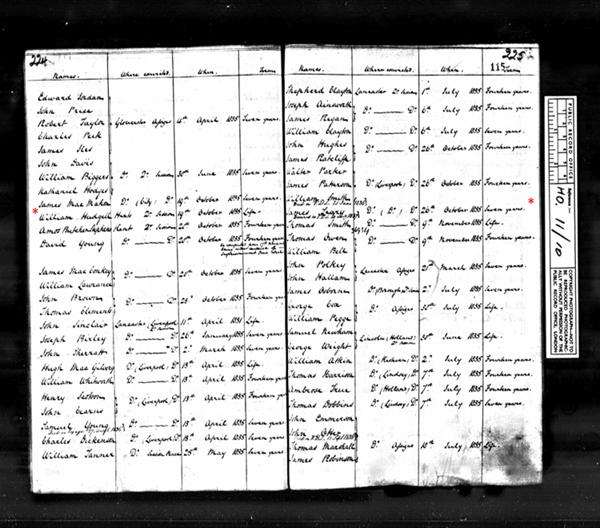 224
Names. Where convicted. When. Term
Edward Jordan
John Price
Robert Taylor Gloucester Assizes April 1835 Seven years.
Charles Peck
James Iles
John Davis
William Biggers Do Do Session 30th June 1835 Seven years.
Nathaniel Hodges
James Mac Mahon Do (City) Do October 1835 Seven years.
* William Hudgell Kent Do Session 19th October 1835 Life.
Amos Kent Do Session October 1835 Fourteen years
David Young Do Do 20th October 1835 Fourteen years
James Mac Conkey Do Do 20th October 1835 Seven years
William Lawrance
John Brown Do Do October 1835 Fourteen years
Thomas Clement
John Sinclair Lancaster (Liverpool) 11th April 1831 Life.
Joseph Do Do 26th January 1835 Seven years
John Do Do March 1835 Seven years
Hugh Mac Do (Liverpool) Do 13th April 1835 Life.
William Whitworth Do Do 13th April 1835 Fourteen years
Henry
John Do (Liverpool) Do 13th April 1835 Fourteen years
Samuel Young Do Do 13th April 1835 Seven years
Charles Dickenson Do (Liverpool) Do 13th April 1835 Seven years
William Tanner Do Session 25th May 1835 Seven years
225
115
Names. Where convicted. When. Term
Shepherd Clayton Lancaster Do Session 1st July 1835 Fourteen years.
Joseph Ainsworth Do Do 6th July 1835 Fourteen years.
James Regan
William Clayton Do Do 6th July 1835 Seven years.
John Hughes Do Do 26th October 1835 Fourteen years.
James Ratcliffe
Walter Parker
James Paterson Do (Liverpool) Do 26th October 1835 Fourteen years.
Do (Do) Do 26th October 1835 Seven years *
Thomas Smith Do Do 9th November 1835 Life.
Thomas Owen Do Do 9th November 1835 Fourteen years.
William Bell
John Polkey
John Hallam Leicester Assizes 21st March 1835 Seven years
James Osborn Do (Borough) Do Session 2nd July 1835 Seven years.
George Cox Do Assizes July 1835 Life
William Pegge
Samuel Lincoln (Holland) Do Session 30th June 1835 Life
George Wright
William Atkin Do (Kesteven) Do 2nd July 1835 Fourteen years.
Thomas Harrison Do (Lindsey) Do 7th July 1835 Fourteen years.
Ambrose Do (Holland) Do 7th July 1835 Fourteen years.
Thomas Dobbins Do (Lindsey) Do 7th July 1835 Seven years.
John Emmerson
John Otter
Thomas Marshall Do Assizes 10th July 1835 Life
James Robinson
PUBLIC RECORD OFFICE
Reference:-
HO. 11/10
COPYRIGHT PHOTOGRAPH-NOT TO BE REPRODUCED PHOTOGRAPHICALLY WITHOUT PERMISSION OF THE PUBLIC RECORD OFFICE, LONDON